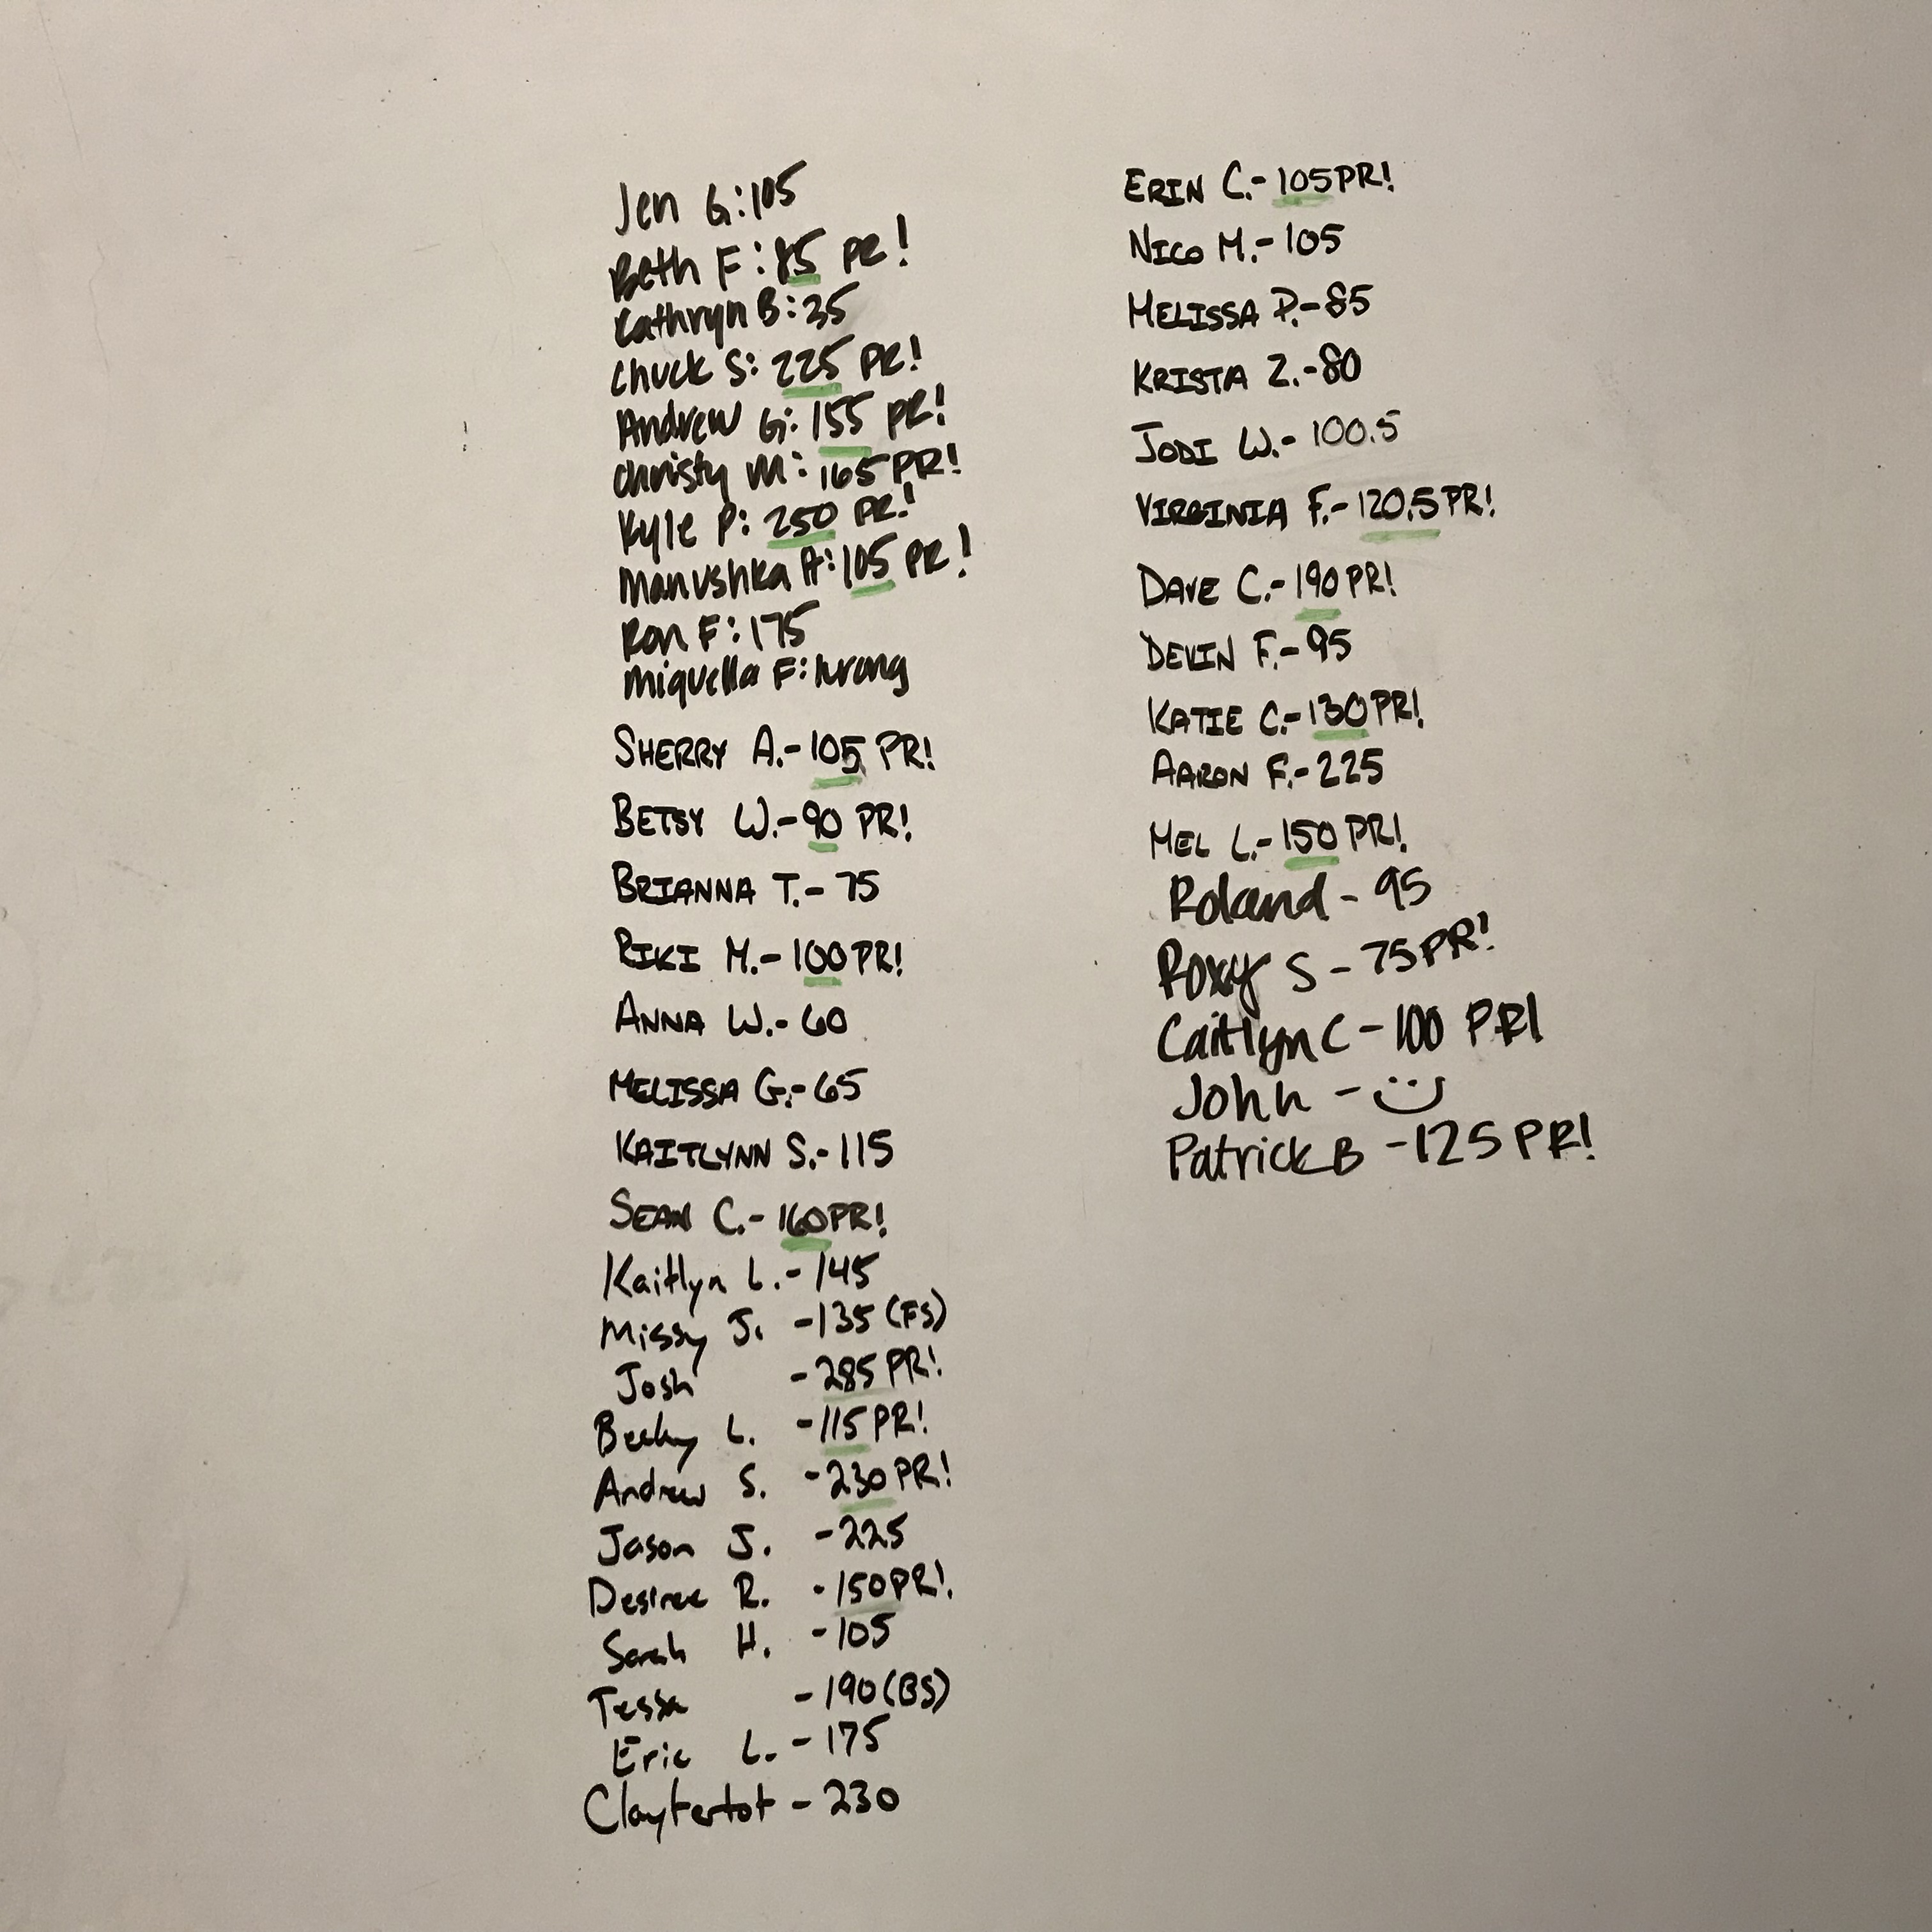 Jen G:105
Beth F:85 PR!
Kathryn B:35
Chuck S: 225 PR!
Andrew G: 155 PR!
Christy M: 165 PR!
Kyle P: 250 PR!
Manushka A:105 PR!
Ron F:175
Miquella F:wrong
SHERRY A.- 105 PR!
BETSY W.- 90 PR!
BRIANNA T.- 75
RIKI M.- 100 PR!
ANNA W.- 60
MELISSA G.- 65
KAITLYNN S.- 115
SEAN C.- 160 PR!
Kaitlyn L.- 145
Missy J. -135 (FS)
Josh -285 PR!
Becky L. -115 PR!
Andrew S. -230 PR!
Jason J. -225
Desiree R. -150 PR!
Sarah H. -105
Tessa -190 (BS)
Eric L. - 175
Claytertot - 230
ERIN C.- 105 PR!
NICO M.- 105
MELISSA P.- 85
KRISTA Z.- 80
JODI W.- 100.5
VIRGINIA F.- 120.5 PR!
DAVE C.- 190 PR!
DEVIN F.- 95
KATIE C.- 130 PR!
AARON F.- 225
MEL L.- 150 PR!
Roland - 95
Roxy S - 75 PR!
Caitlyn C - 100 PR!
John -
Patrick B -125 PR!